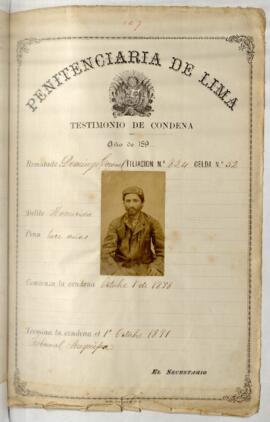 PENITENCIARIA DE LIMA
TESTIMONIO DE CONDENA
Año de 189
Rematado Domingo FILIACION N.º 624 CELDA N.º 52
Delito Homicidio
Pena años
Comienza la condena Octubre 1º de 18
Termina la condena el 1º Octubre 1891
Tribunal Arequipa
EL SECRETARIO